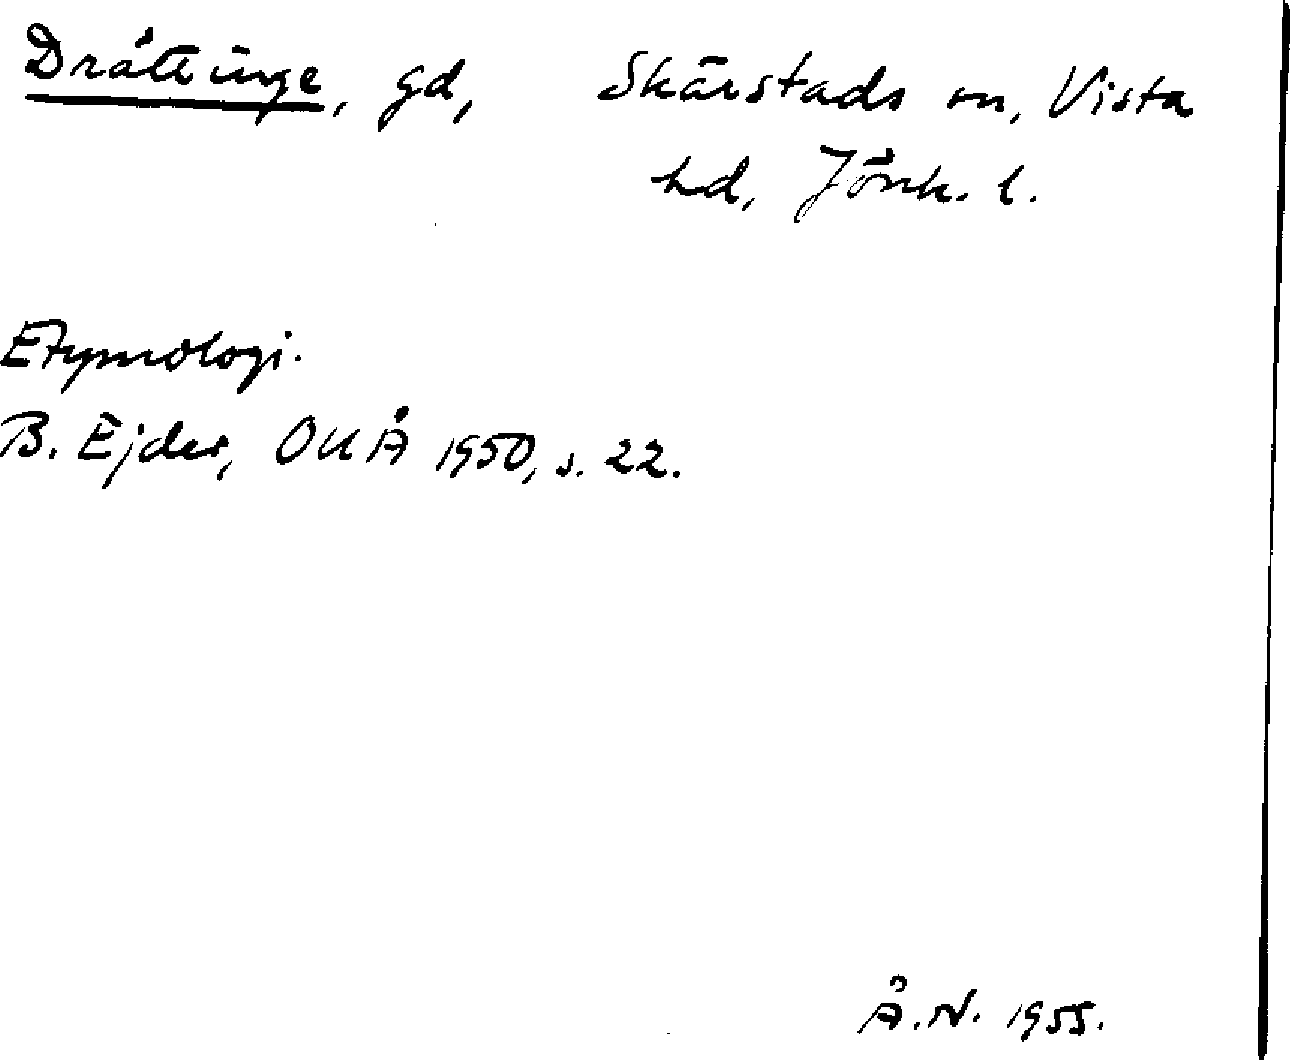 Drättinge, gd, Skärstads sn, Vista
hd, Jönk. l.
Etymologi.
B. Ejder, OUÅ 1950, s. 22.
Å.N. 1955.